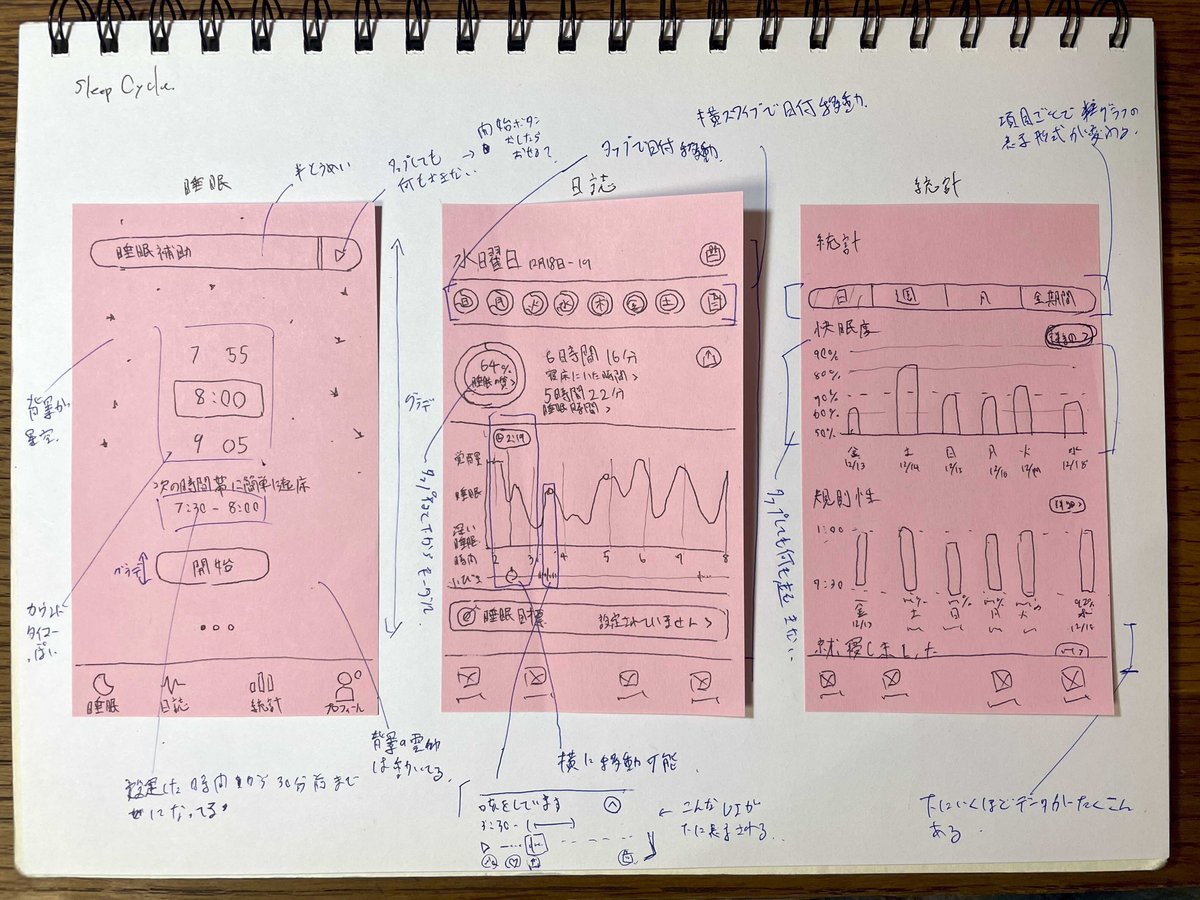 Sleep Cycle.
睡眠
半とうめい
タップしても
何もおきない
→ 開始ボタン
おしたら
おせるて
睡眠補助
7 55
8:00
9 05
次の時間帯に簡単に起床
7:30 - 8:00
開始
睡眠
日誌
統計
プロフィール
背景が
星空.
グラデ
カウント
タイマー
っぽい
背景の雲の
は動いてる.
設定した時間から30分前まで
になってる
横スワイプで日付移動.
タップで日付移動.
日誌
水曜日 12月18日-19
日 月 火 水 木 金 土
64%
睡眠の質>
6時間16分
寝床にいた時間>
5時間22分
睡眠時間>
2:19
覚醒
睡眠
深い
睡眠
時間
2 3 4 5 6 7 8
いびき
睡眠目標
設定されていません >
タップすると下からモーダル
横に移動可能
咳をしています
3:30 -
← こんなUIが
下に表示される.
項目ごとで グラフの
表示形式が変わる.
統計
統計
日 週 月 全期間
快眠度
詳細>
90%
80%
70%
60%
50%
金 土 日 月 火 水
12/13 12/14 12/15 12/16 12/17 12/18
規則性
詳細>
1:00
9:30
金 土 日 月 火 水
12/13
12/18
就寝しました
タップしても何も起きない
下にいくほどデータがたくさん
ある.